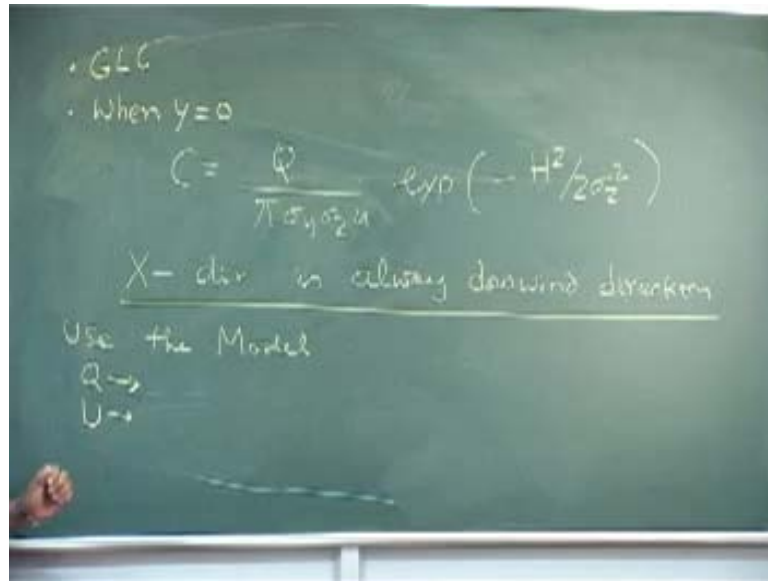 · GLC
· When y = 0
C = Q / π σy σz u exp (- H²/2σz²)
X - dir is always donwind direction
Use the Model
Q →
U →